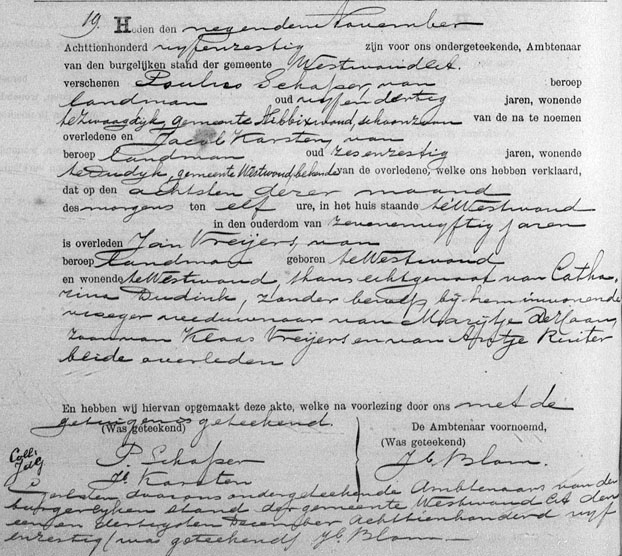 19. Heden den negenden November
Achttienhonderd vyfenzestig zijn voor ons ondergeteekende, Ambtenaar
van den burgelijken stand der gemeente Westwoud
verschenen Paulus Schafser, van beroep
landman oud vyfendertig jaren, wonende
te Zwaagdyk, gemeente Nibbixwoud, schoonzoon van de na te noemen
overledene en Jacob Karsten, van
beroep landman oud zesenzestig jaren, wonende
te gemeente Westwoud, bekende van de overledene, welke ons hebben verklaard,
dat op den achtsten dezer maand
des morgens ten elf ure, in het huis staande te Westwoud
in den ouderdom van zevenenvyftig jaren
is overleden Jan Vreijers, van
beroep landman geboren te Westwoud
en wonende te Westwoud, thans echtgenoot van Catha
rina Dudink, zonder beroep, bij hem inwonende
vroeger weduwnaar van Marijtje
zoon van Klaas Vreijers en van Aafje Ruiter
beide overleden
En hebben wij hiervan opgemaakt deze akte, welke na voorlezing door ons met de
getuigen is geteekend.
(Was geteekend)
P. Schafser
Jb Karsten
De Ambtenaar voornoemd,
(Was geteekend)
Jb. Blom.
Gesloten door ons ondergeteekende Ambtenaar van den
burgerlyken stand der gemeente Westwoud den
een en dertigsten December Achttienhonderd vyf
enzestig (was geteekend) Jb. Blom